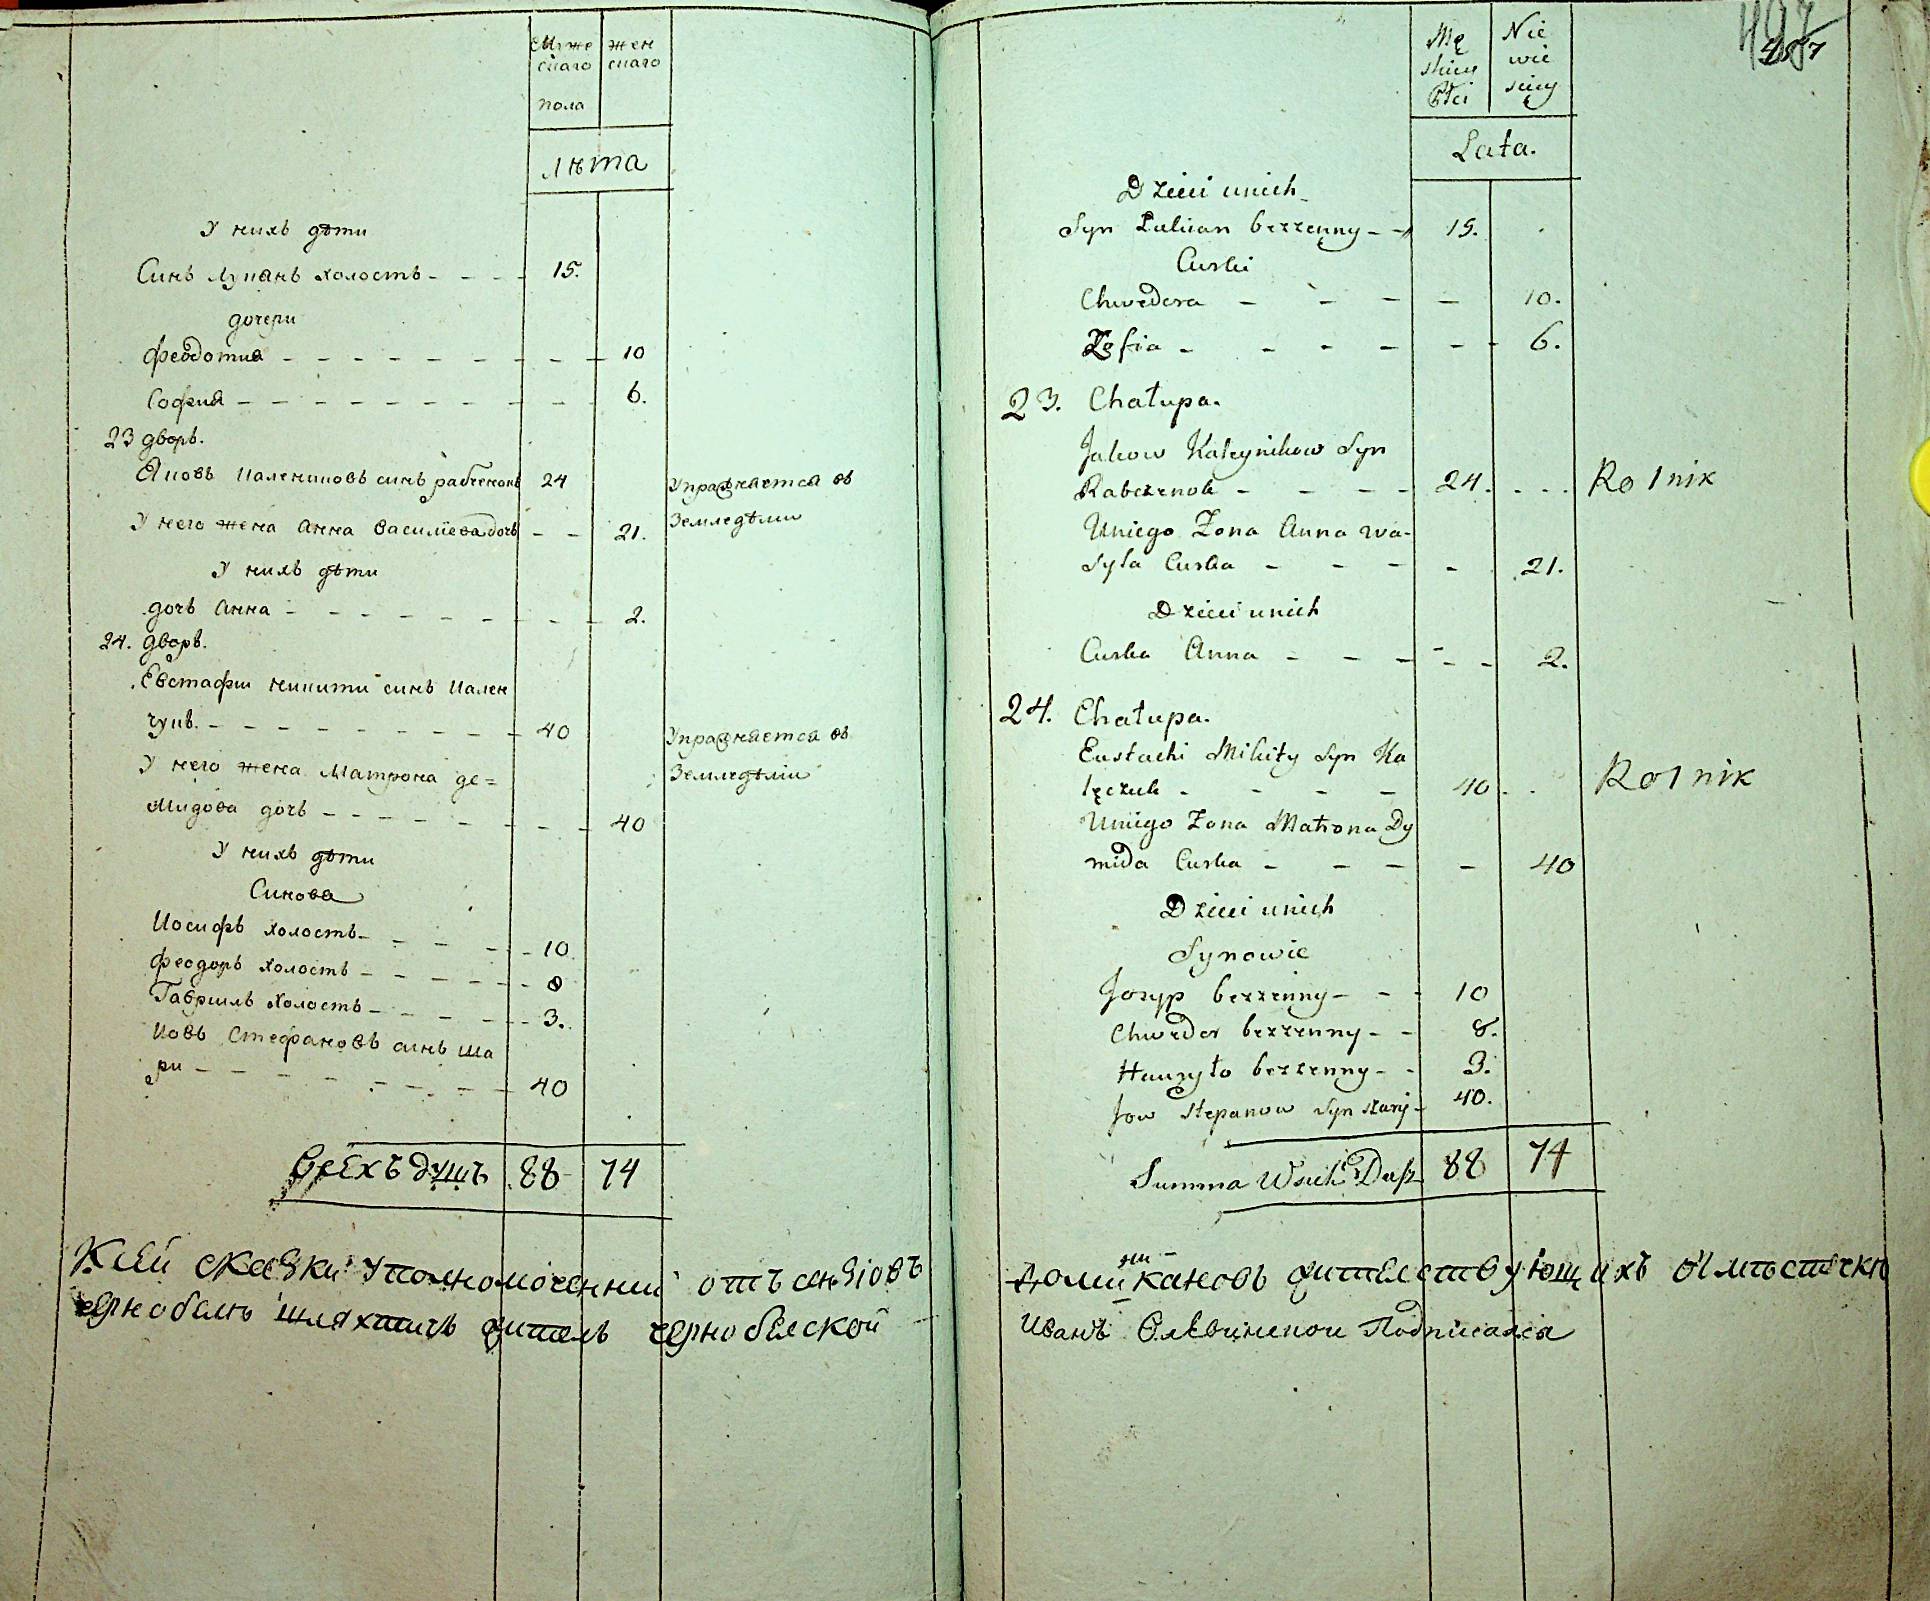 Муже жен
скаго скаго
пола
лѣта
У нихъ дѣти
Синъ Лупанъ холостъ - - - - 15.
дочери
Феодотия - - - - - - - - - 10
София - - - - - - - - - - 6.
23 дворъ.
Яковъ Калениковъ синъ рабченокъ 24 Упражняется въ
У него жена Анна Василіева дочь - - 21. Земледѣлии
У нихъ дѣти
дочь Анна - - - - - - - - - 2.
24. дворъ.
Евстафии никити синъ Кален
чукъ. - - - - - - - - - 40 Упражняется въ
У него жена Матрона де= Земледѣліи
мидова дочь - - - - - - - - 40
У нихъ дѣти
Синова
Иосифъ холостъ - - - - - 10.
Феодоръ холостъ - - - - - - 8
Гавриилъ холостъ - - - - - 3.
Иовъ Стефановъ синъ ша
ри - - - - - - - - - 40
Всехъ душъ 88 74
К сей скаски уполномоченний отъ
чернобелю шляхтичъ житель чернобелской
497
Mę Nie
skiey wie
Płci sciey
Lata.
Dzieci unich
Syn Lukian bezzenny - - 15. .
Curki
Chwedora - - - - 10.
Zofia - - - - - - 6.
23. Chałupa.
Jakow Kaleynikow Syn
Rabczenok - - - - 24. - - . Rolnik
Uniego Zona Anna Wa-
syla Curka - - - - 21.
Dzieci unich
Curka Anna - - - - - - 2.
24. Chałupa.
Eustachi Mikity Syn Ka
lęczuk - - - - 40 . . Rolnik
Uniego Zona Matrona Dy
mida Curka - - - - 40
Dzieci unich
Synowie
Jozyp bezzenny - - - 10
Chwedor bezzenny - - 8.
Hawryło bezzenny - - 3.
Jow Stepanow Syn szary - 40.
Summa Wsich Dusz 88 74
доминикановъ жителствующихъ в мѣстечкѣ
Иванъ Подписался